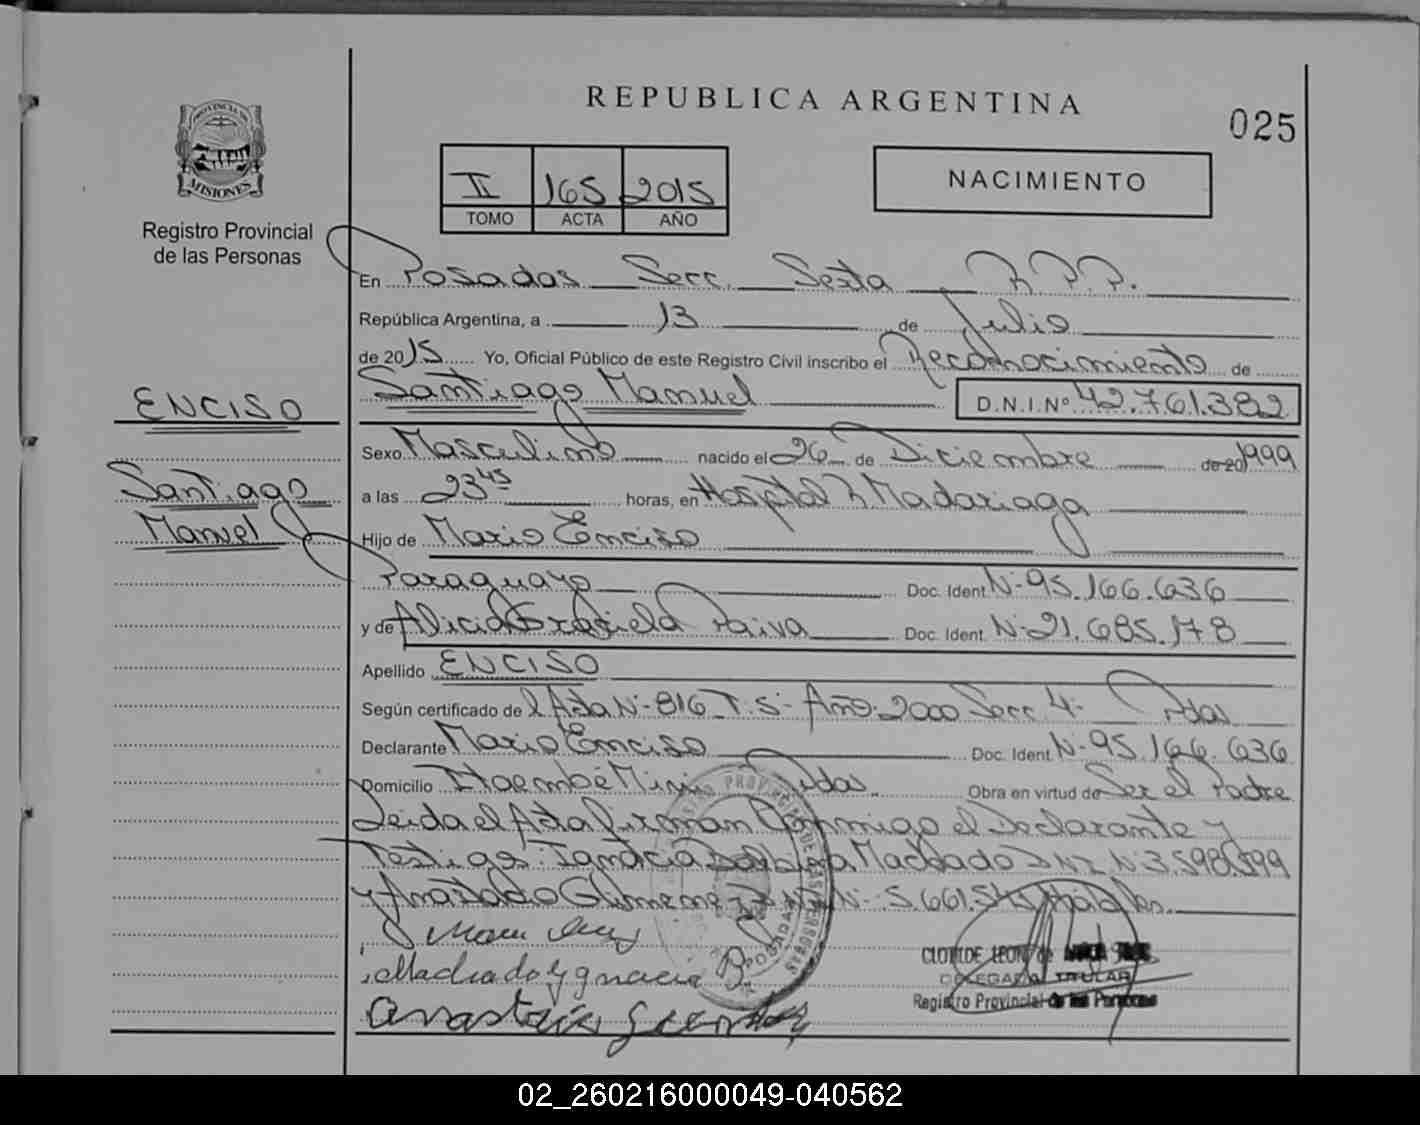 REPUBLICA ARGENTINA
025
PROVINCIA DE
MISIONES
Registro Provincial
de las Personas
II 165 2015
TOMO ACTA AÑO
NACIMIENTO
En Posadas Secc. Sexta R.P.P.
República Argentina, a 13 de Julio
de 2015 Yo, Oficial Público de este Registro Civil inscribo el Reconocimiento de
Santiago Manuel D.N.I.Nº 42.761.382
ENCISO
Santiago
Manuel
Sexo Masculino nacido el 26 de Diciembre de 20 1999
a las 23 45 horas, en Hospital R. Madariaga
Hijo de Mario Enciso
Paraguayo Doc. Ident. N- 95.166.636
y de Alicia Graciela Paiva Doc. Ident. N- 21.685.178
Apellido ENCISO
Según certificado de l Acta N- 816 T.5- Año 2000 Secc 4- Pdas
Declarante Mario Enciso Doc. Ident. N- 95.166.636
Domicilio Itaembé Mini Pdas. Obra en virtud de Ser el Padre
Leida el Acta firman Conmigo el Declarante y
Testigos Ignacia Machado D.N.I. N- 3.598.899
y Gimenez N- 5.661.
Machado Ygnacia
CLOTILDE LEON de
DELEGADA TITULAR
Registro Provincial de las Personas
02_260216000049-040562